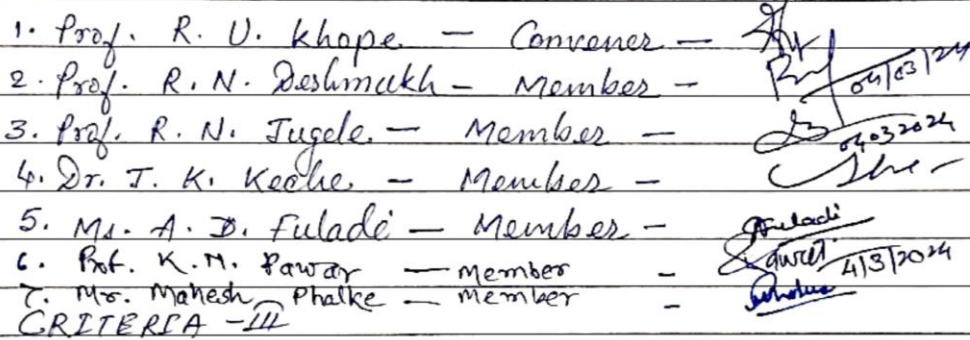 1. Prof. R. U. Khope - Convener -
2. Prof. R. N. Deshmukh - Member - 04/03/24
3. Prof. R. N. Jugele - Member - 04032024
4. Dr. J. K. Keche - Member -
5. Ms. A. D. Fuladi - Member - Fuladi
6. Prof. K. M. Pawar - Member - 4/3/2024
7. Mr. Mahesh Phalke - Member -
CRITERIA - III